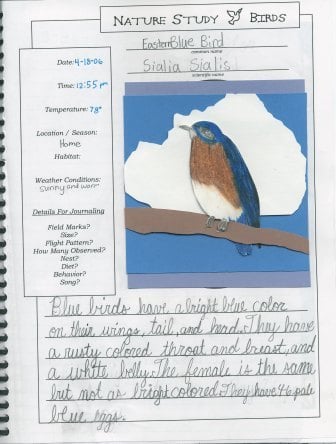 NATURE STUDY BIRDS
Eastern Blue Bird
common name
Sialia Sialis
scientific name
Date: 4-18-06
Time: 12:55 pm
Temperature: 78°
Location / Season:
Home
Habitat:
Weather Conditions:
sunny and warm
Details For Journaling
Field Marks?
Size?
Flight Pattern?
How Many Observed?
Nest?
Diet?
Behavior?
Song?
Blue birds have a bright blue color
on their wings, tail, and herd. They have
a rusty colored throat and breast, and
a white belly. The female is the same
but not as bright colored. They have 4-6 pale
blue eggs.